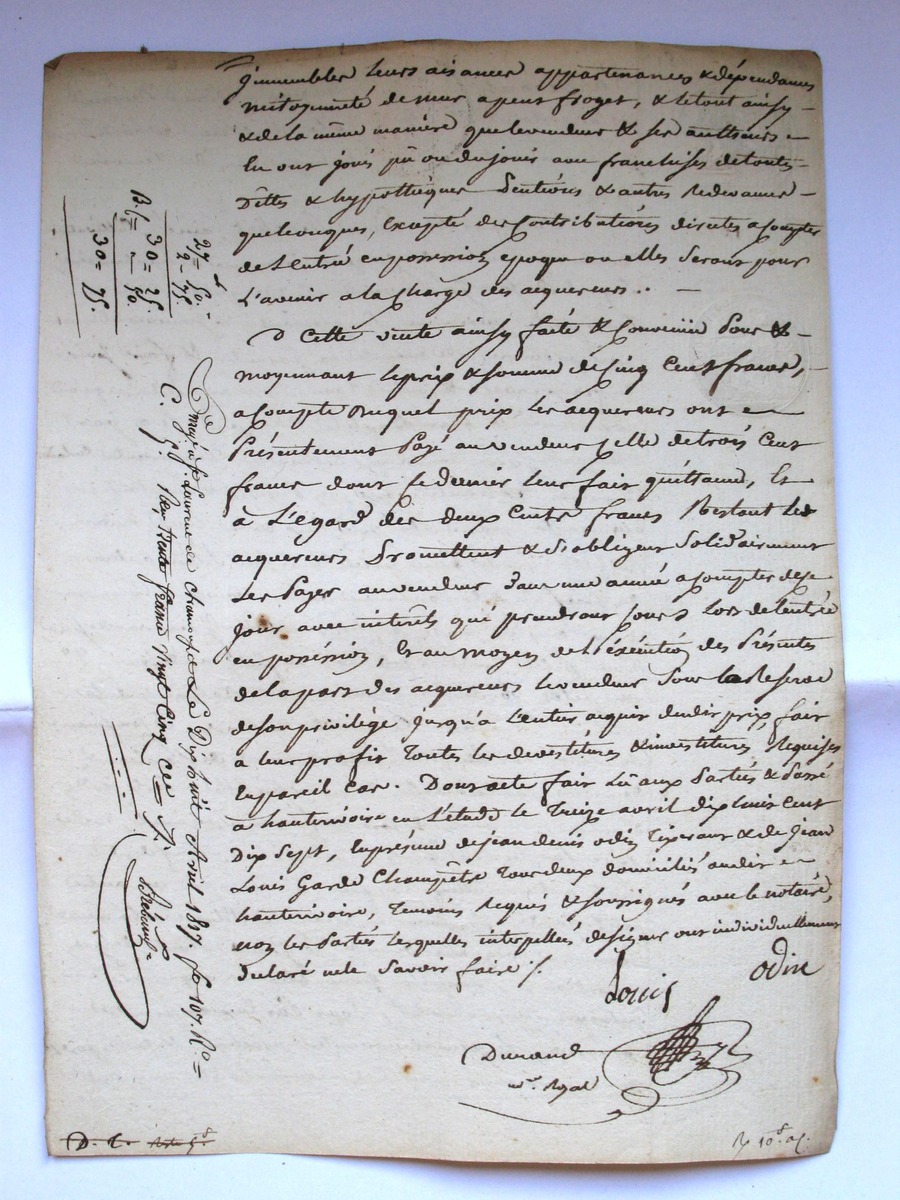 d'immeubles leurs aisances appartenances & dépendances
mitoyenneté de murs a pent froget, & le tout ainsy
& de la même manière que le vendeur & ses autheurs
en ont joui pû ou du jouir avec franchises de toutes
Dêttes & hypothèques Sentions & autres Redevances
quelconques, Excepté des Contributions directes a Compter
de L'entrée en possession epoque ou elles Seront pour
L'avenir a la Charge des acquereurs..
Cette vente ainsy faite & Convenüe Pour &
moyennant le prix & somme de Cinq Cent francs,
a Compte duquel prix les acquereurs ont
Présentement Payé au vendeur Celle de trois Cent
francs dont Ce dernier leur fait quittance, Et
à L'égard des deux Cents francs Restant les
acquereurs Promettent & s'obligent Solidairement
Les Payer au vendeur Dans une année a Compter de ce
jour avec intérêts qui prendront Cours Lors de l'entrée
en possession, Et au moyen de l'éxécution des Présentes
de la part des acquereurs le vendeur Sous la Reserve
de son privilège jusqu'à L'entier acquit dudit prix, fait
a leur profit Toutes les devestitures & investitures Requises
En pareil Cas. Dont acte fait Lû aux Parties & Passé
à hauterivoire en L'étude le Treize avril dix huit Cent
Dix Sept, En présence de jean denis odin Tixerant & de Jean
Louis Garde Champêtre Tous deux domiciliés audit
hauterivoire, Temoins Requis & soussignés avec le notaire,
non les Parties lesquelles interpellées de signer ont individuellement
Déclaré ne le Savoir faire ./.
Louis odin
Durand
nre. Royal
27= 50.
2= 75.
30= 25.
B. f= 50.
30= 75.
Enregé. à St. Laurent de Chamousset Le Dix huit Avril 1817. fo 107. Ro=
C. 9. Reçu Trente francs Vingt Cinq Ces
Trébaud
D. C.